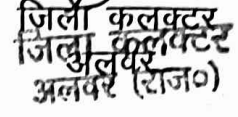 जिला कलक्टर
जिला कलक्टर
अलवर
अलवर (राज०)